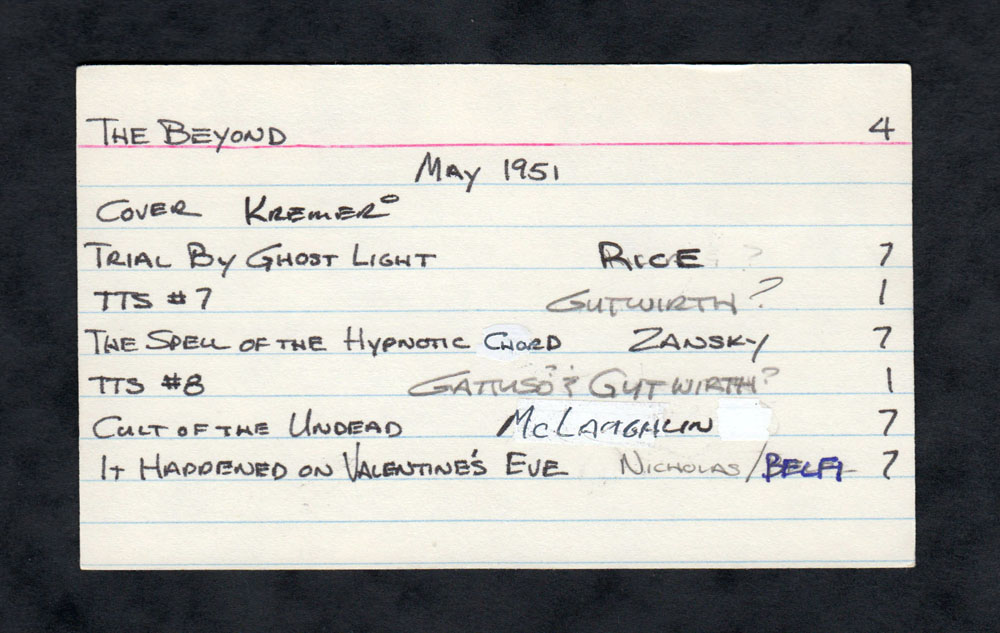 THE BEYOND 4
MAY 1951
COVER KREMER°
TRIAL BY GHOST LIGHT RICE ? 7
TTS #7 GUTWIRTH? 1
THE SPELL OF THE HYPNOTIC CHORD ZANSKY 7
TTS #8 GATTUSO? & GUTWIRTH? 1
CULT OF THE UNDEAD MCLAUGHLIN 7
IT HAPPENED ON VALENTINE'S EVE NICHOLAS/BELFI 7